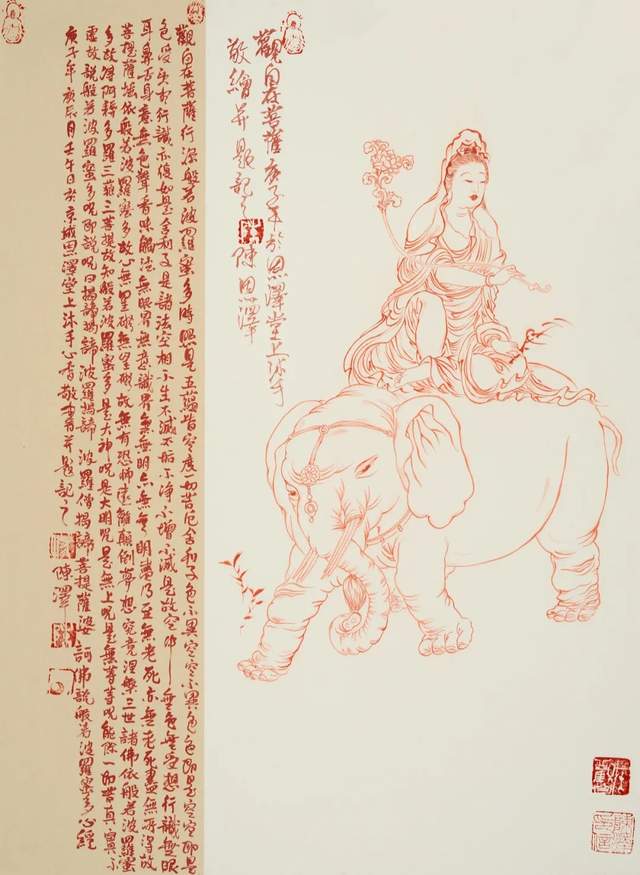 觀自在菩薩庚子年於恩澤堂上沐手
敬繪并題記之 陳恩澤
觀自在菩薩行深般若波羅蜜多時照見五蘊皆空度一切苦厄舍利子色不異空空不異色色即是空空即是
色受想行識亦復如是舍利子是諸法空相不生不滅不垢不淨不增不減是故空中無色無受想行識無眼
耳鼻舌身意無色聲香味觸法無眼界無意識界無無明亦無無明盡乃至無老死亦無老死盡無所得故
菩提薩埵依般若波羅蜜多故心無罣礙無罣礙故無有恐怖遠離顛倒夢想究竟涅槃三世諸佛依般若波羅蜜
多故得阿耨多羅三藐三菩提故知般若波羅蜜多是大神咒是大明咒是無上咒是無等等咒能除一切苦真實不
虛故說般若波羅蜜多咒即說咒曰揭諦揭諦波羅揭諦波羅僧揭諦菩提薩婆訶佛說般若波羅蜜多心經
庚子年庚辰月壬午日於京城恩澤堂上沐手心香敬書并題記之 陳澤